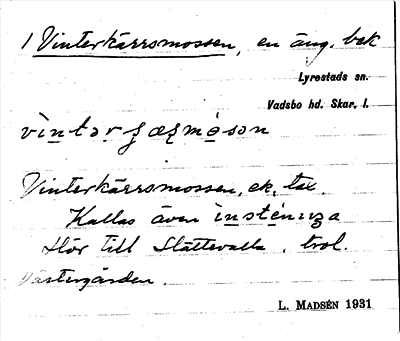 1 Vinterkärrsmossen, en äng. bek
Lyrestads sn.
Vadsbo hd. Skar. l.
Vinterkärrsmossen, ek. tax.
Kallas även
Hör till Slättevalla, trol.
Västergården.
L. MADSÉN 1931